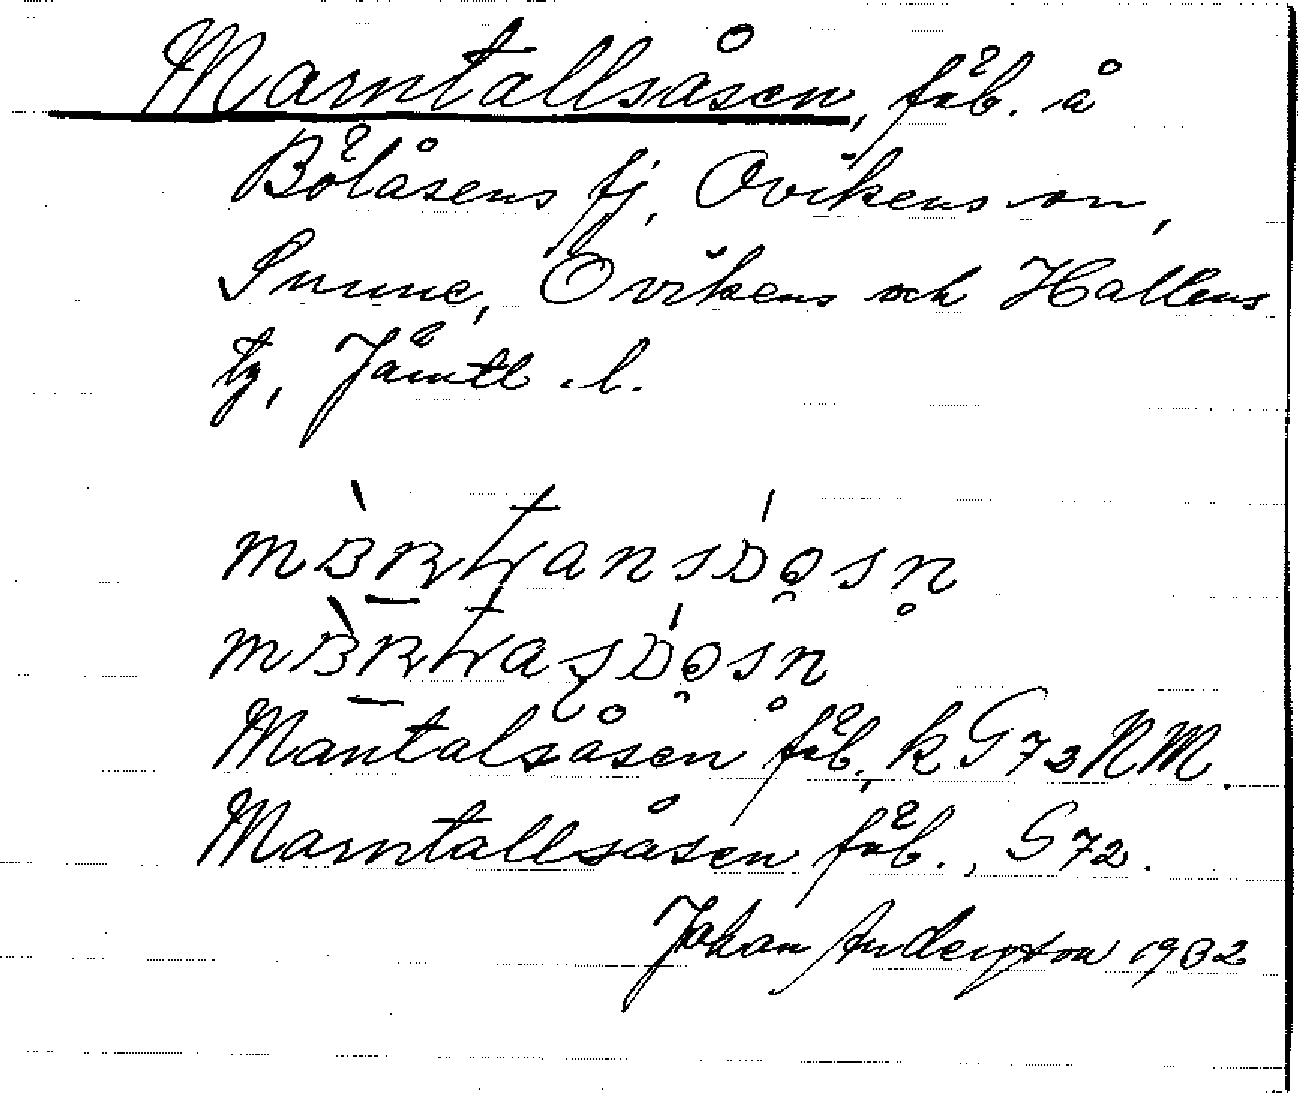 Marntallsåsen, fäb. å
Bölåsens fj, Ovikens sn,
Sunne, Ovikens och Hallens
tg, Jämtl. l.
Mantalsåsen fäb, k G72 NM.
Marntallsåsen fäb., S72.
Johan Anderxon 1932